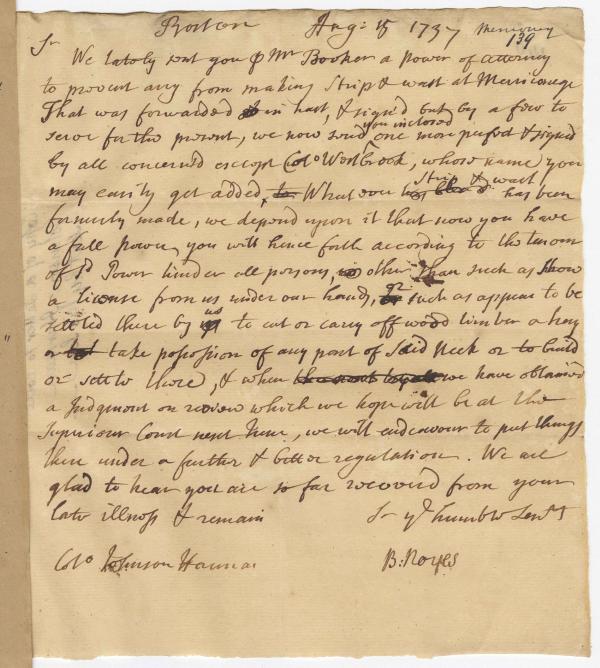 Boston Aug: 15 1737 Merriconeg
139
Sr
We lately sent you ⅌ Mr Booker a Power of attorney
to prevent any from making Strip & wast at Merriconege
That was forwarded in hast, & sign'd but by a few to
serve for the present, we now send you inclosed one more perfect & signed
by all concern'd except Colo Westbrook, whose name you
may easily get added, What ever strip & wast has been
formerly made, we depend upon it that now you have
a full power, you will hence forth according to the tenor
of sd Power hinder all persons, other than such as show
a license from us under our hands, or such as appear to be
settled there by us to cut or carry off wood timber or hay
or take possession of any part of Said Neck or to build
or settle there, & when we have obtained
a Judgment on review which we hope will be at the
Superiour Court next June, we will endeavour to put things
there under a further & better regulation. We are
glad to hear you are so far recovered from your
late illness & remain Sr yr humble Servt
Colo Johnson Harmon B: Noyes